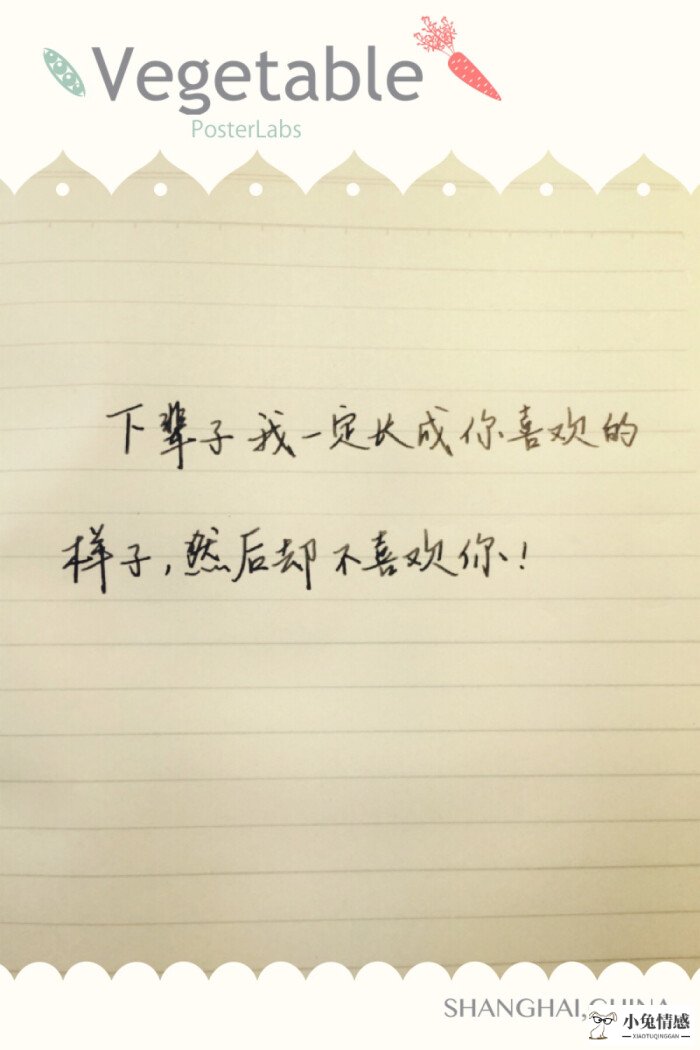 Vegetable
PosterLabs
下辈子我一定长成你喜欢的
样子,然后却不喜欢你!
SHANGHAI,CHINA
小兔情感
XIAOTUQINGGAN